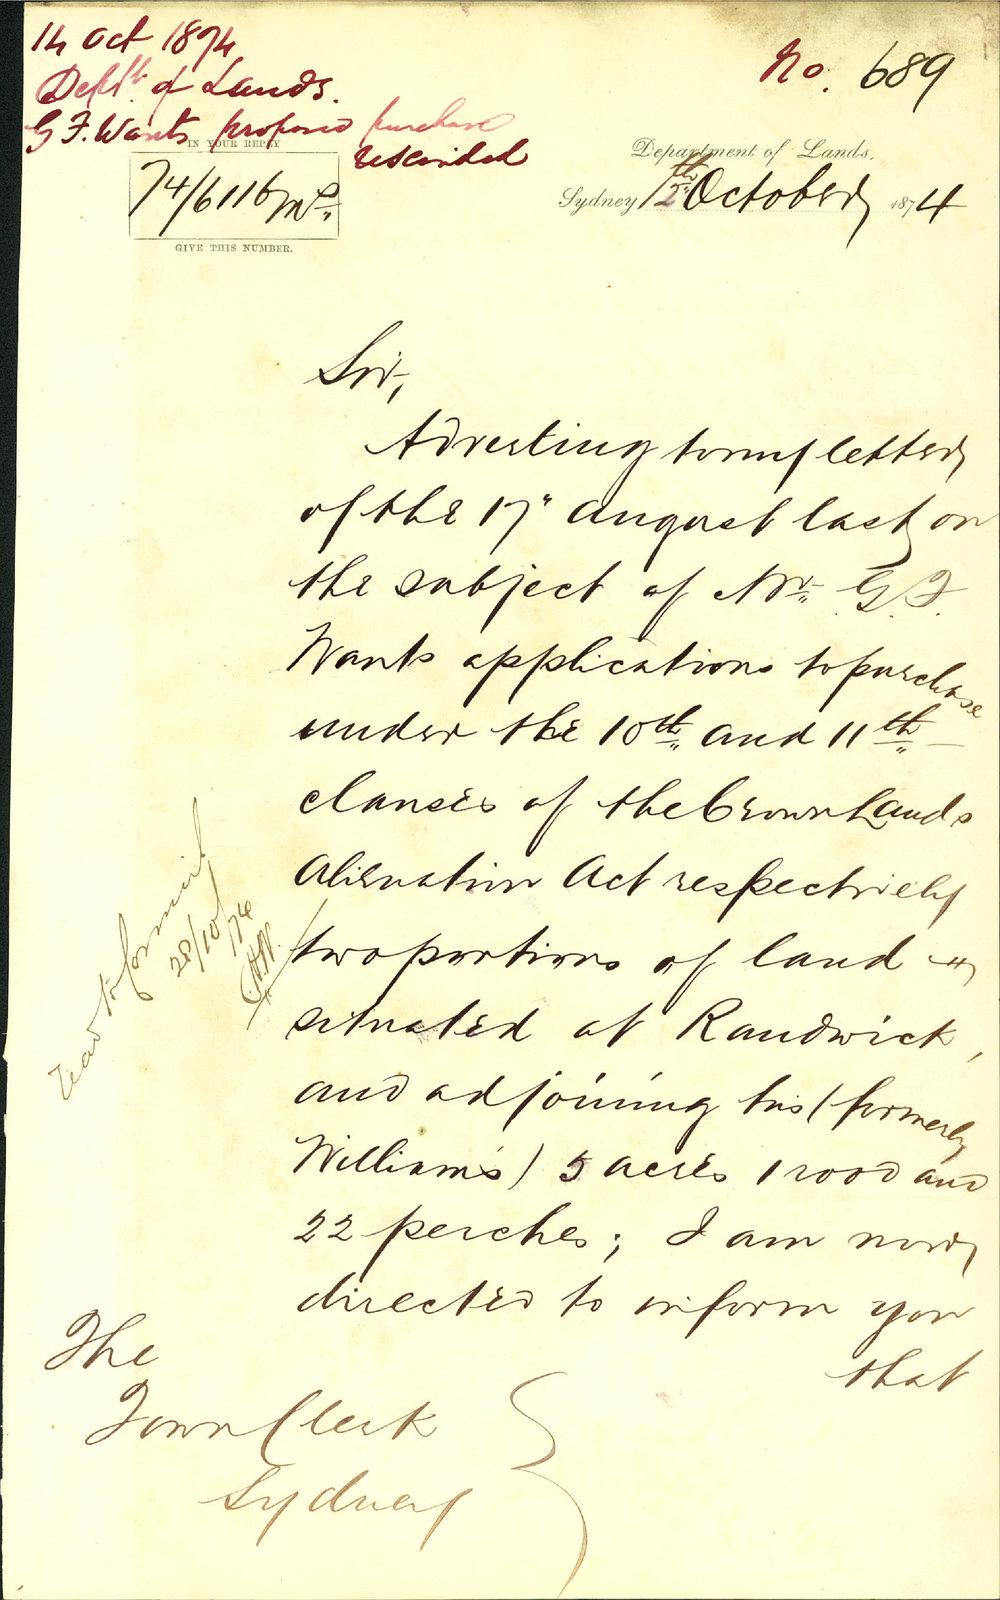 14 Oct 1874
Deptt. of Lands.
G F. Wants proposed purchase
rescinded
No. 689
IN YOUR REPLY
74/6116 Ms.
GIVE THIS NUMBER.
Department of Lands,
Sydney 12th October 1874
Sir,
Adverting to my letter
of the 17" August last on
the subject of Mr. G. F.
Wants applications to purchase
under the 10th and 11th
clauses of the Crown Lands
Alienation Act respectively
two portions of land
situated at Randwick,
and adjoining his (formerly
William's) 5 acres 1 rood and
22 perches; I am now
directed to inform you
that
28/10/74
The
Town Clerk
Sydney